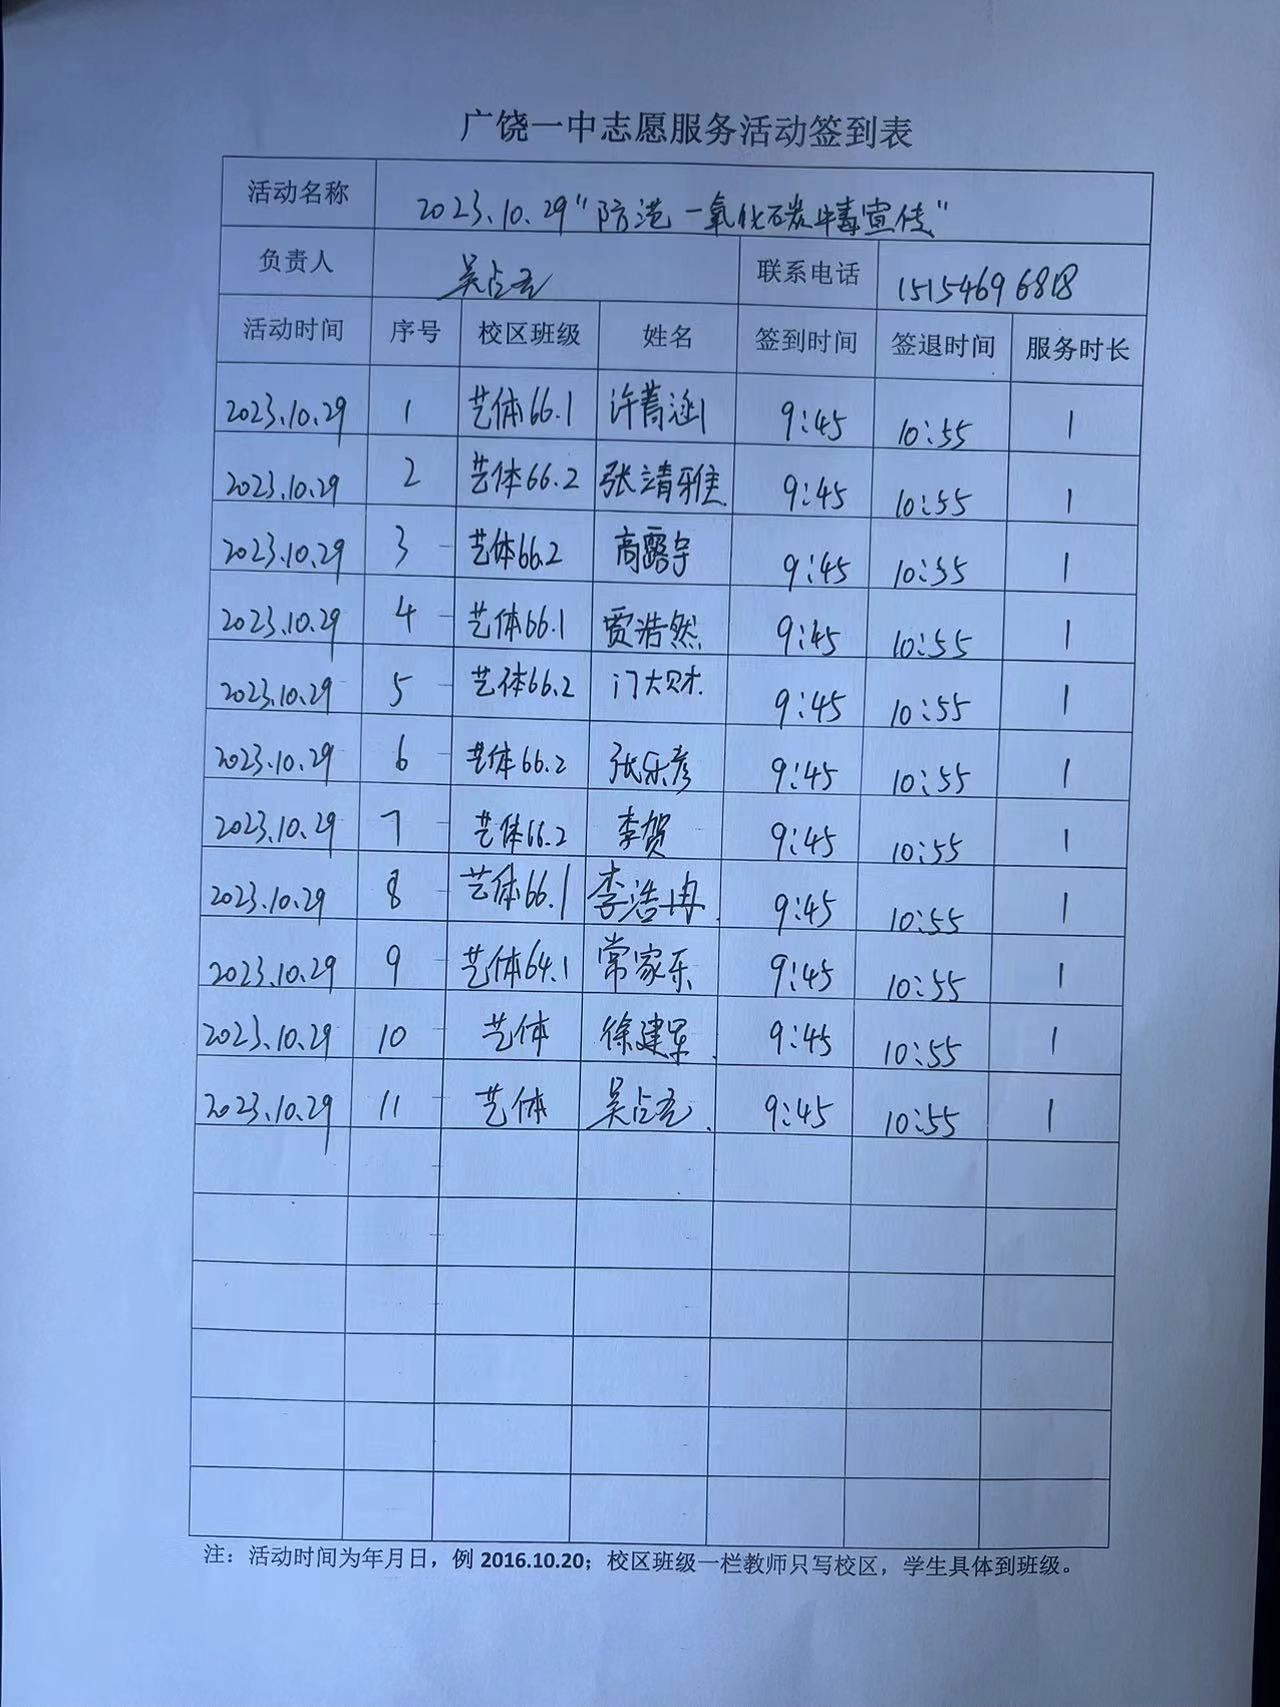 广饶一中志愿服务活动签到表
活动名称 2023.10.29"防范一氧化碳中毒宣传"
负责人 吴占 联系电话 15154696818
活动时间 序号 校区班级 姓名 签到时间 签退时间 服务时长
2023.10.29 1 艺体66.1 许菁涵 9:45 10:55 1
2023.10.29 2 艺体66.2 张靖雅 9:45 10:55 1
2023.10.29 3 艺体66.2 商露宇 9:45 10:55 1
2023.10.29 4 艺体66.1 贾浩然 9:45 10:55 1
2023.10.29 5 艺体66.2 门大财 9:45 10:55 1
2023.10.29 6 艺体66.2 张乐彦 9:45 10:55 1
2023.10.29 7 艺体66.2 李贺 9:45 10:55 1
2023.10.29 8 艺体66.1 李浩冉 9:45 10:55 1
2023.10.29 9 艺体64.1 常家乐 9:45 10:55 1
2023.10.29 10 艺体 徐建军 9:45 10:55 1
2023.10.29 11 艺体 吴占 9:45 10:55 1
注：活动时间为年月日，例 2016.10.20；校区班级一栏教师只写校区，学生具体到班级。